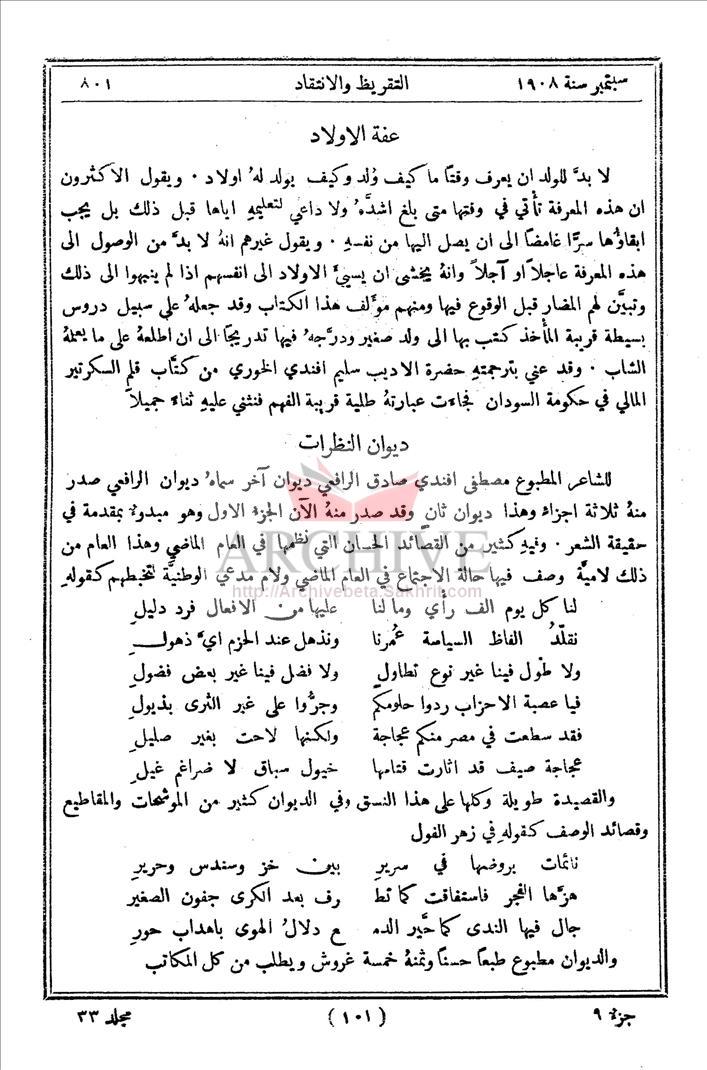 سبتمبر سنة ١٩٠٨ التقريظ والانتقاد ٨٠١
عفة الاولاد
لا بدَّ للولد ان يعرف وقتًا ما كيف وُلد وكيف يولد لهُ اولاد . ويقول الاكثرون
ان هذه المعرفة تأتي في وقتها متى بلغ اشدَّهُ ولا داعي لتعليمهِ اياها قبل ذلك بل يجب
ابقاؤها سرًّا غامضًا الى ان يصل اليها من نفسهِ . ويقول غيرهم انهُ لا بدَّ من الوصول الى
هذه المعرفة عاجلاً او آجلاً وانهُ يخشى ان يسيءَ الاولاد الى انفسهم اذا لم ينبهوا الى ذلك
وتبيَّن لهم المضار قبل الوقوع فيها ومنهم مؤلف هذا الكتاب وقد جعلهُ على سبيل دروس
بسيطة قريبة المأخذ كتب بها الى ولد صغير ودرَّجهُ فيها تدريجًا الى ان اطلعهُ على ما يعملهُ
الشاب . وقد عني بترجمتهِ حضرة الاديب سليم افندي الخوري من كتَّاب قلم السكرتير
المالي في حكومة السودان فجاءت عبارتهُ طلية قريبة الفهم فنثني عليهِ ثناءً جميلاً
ديوان النظرات
للشاعر المطبوع مصطفى افندي صادق الرافعي ديوان آخر سماهُ ديوان الرافعي صدر
منهُ ثلاثة اجزاء وهذا ديوان ثان وقد صدر منهُ الآن الجزء الاول وهو مبدوء بمقدمة في
حقيقة الشعر . وفيهِ كثير من القصائد الحسان التي نظمها في العام الماضي وهذا العام من
ذلك لاميَّة وصف فيها حالة الاجتماع في العام الماضي ولام مدعي الوطنيَّة لتخبطهم كقولهِ
لنا كل يوم الف رأي وما لنا عليها من الافعال فرد دليلِ
نقلّدُ الفاظ السياسة عُمرنا ونذهل عند الحزم ايَّ ذهولِ
ولا طول فينا غير نوع تطاولٍ ولا فضل فينا غير بعض فضولِ
فيا عصبة الاحزاب ردوا حلومكم وجرُّوا على غير الثرى بذيولِ
فقد سطعت في مصر منكم عجاجة ولكنها لاحت بغير صليلِ
عجاجة صيف قد اثارت قتامها خيول سباق لا ضراغم غيلِ
والقصيدة طويلة وكلها على هذا النسق وفي الديوان كثير من الموشحات والمقاطيع
وقصائد الوصف كقولهِ في زهر الفول
نائمات بروضها في سريرِ بين خز وسندس وحريرِ
هزَّها الفجر فاستفاقت كما تط رف بعد الكرى جفون الصغير
جال فيها الندى كما حيَّر الدم ع دلالُ الهوى باهداب حورِ
والديوان مطبوع طبعًا حسنًا وثمنهُ خمسة غروش ويطلب من كل المكاتب
جزء ٩ (١٠١) مجلد ٣٣
ARCHIVE
http://Archivebeta.Sakhrit.com